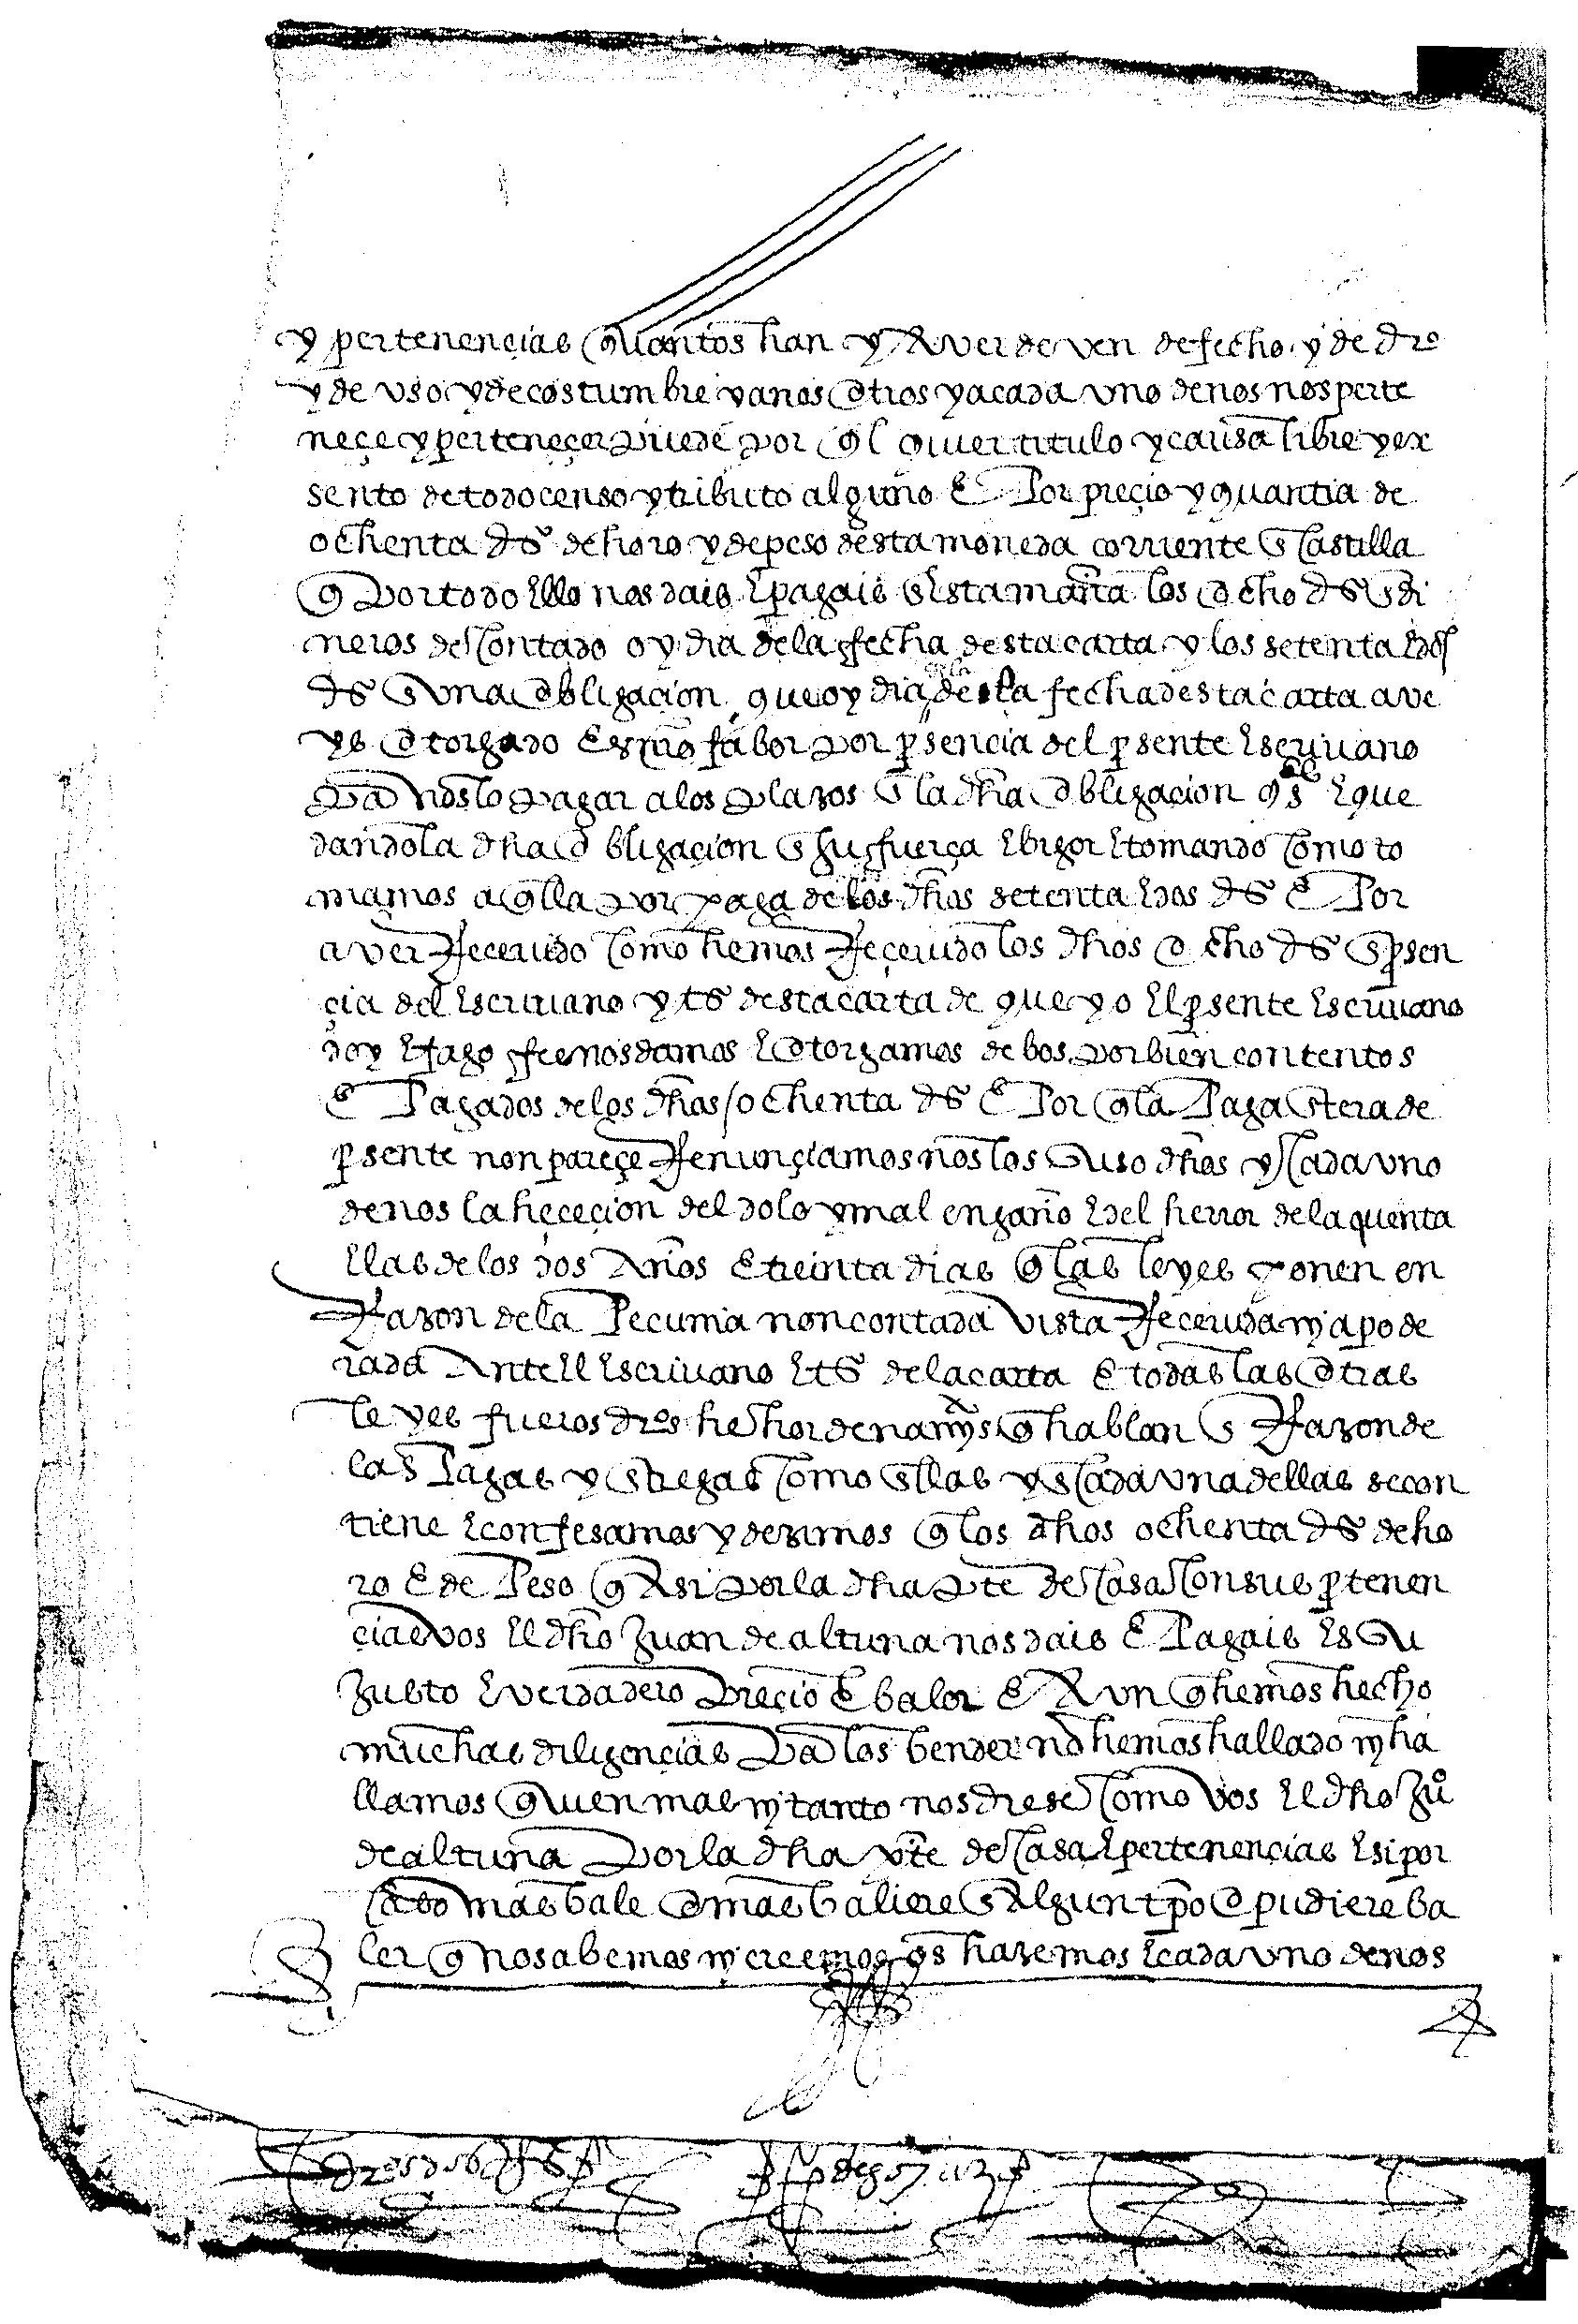 y pertenençias quantos han y Aver deven de fecho y de dro
y de uso y de costumbre y a nos otros y a cada uno de nos nos perte
neçe y perteneçer puede por ql quier titulo y causa libre y ex
sento de todo censo y tributo alguno E Por preçio y quantia de
ochenta ds de horo y de peso desta moneda corriente en Castilla
q por todo Ello nos dais E pagais en Esta manra los ocho ds en di
neros de Contado oy dia de la fecha desta carta y los setenta E dos
ds en una obligaçion que oy dia desta fecha desta carta ave
ys otorgado En nro fabor por psencia del psente Escrivano
Pa nos lo pagar a los plazos en la dha obligaçion E que
dando la dha obligaçion en su fuerça E bigor E tomando Como to
mamos aqlla por paga de los dhos setenta E dos ds E Por
aver Recevido Como hemos Reçevido los dhos ocho ds en psen
çia del Escrivano y ts desta carta de que yo El psente Escrivano
doy E fago fee nos damos E otorgamos de bos por bien contentos
E Pagados de los dhos ochenta ds E Por q la Paga Entera de
psente non pareçe Renunçiamos nos los Suso dhos y Cada uno
de nos la heçeçion del dolo y mal engaño E del herror de la quenta
E las de los dos Años E treinta dias q las leyes ponen en
Razon de la Pecunia non contada vista Recevida ni apode
rada Ante El Escrivano E ts de la carta E todas las otras
leyes fueros dros he hordenamys q hablan en Razon de
las Pagas y Entregas Como en Ellas y en Cada una dellas se con
tiene E confesamos y dezimos q los dhos ochenta ds de ho
ro E de Peso q Asi por la dha pte de Casa Con sus ptenen
çias vos El dho Juan de altuna nos dais E Pagais Es Su
Justo E verdadero Preçio E balor E Aun q hemos hecho
muchas diligençias Pa los bender no hemos hallado ni ha
llamos quien mas ni tanto nos diese Como vos El dho Juo
de altuna Por la dha pte de Casa E pertenençias E si por
caso mas bale o mas baliere en Algun tpo o pudiere ba
ler q no sabemos ni creemos os hazemos E cada uno de nos